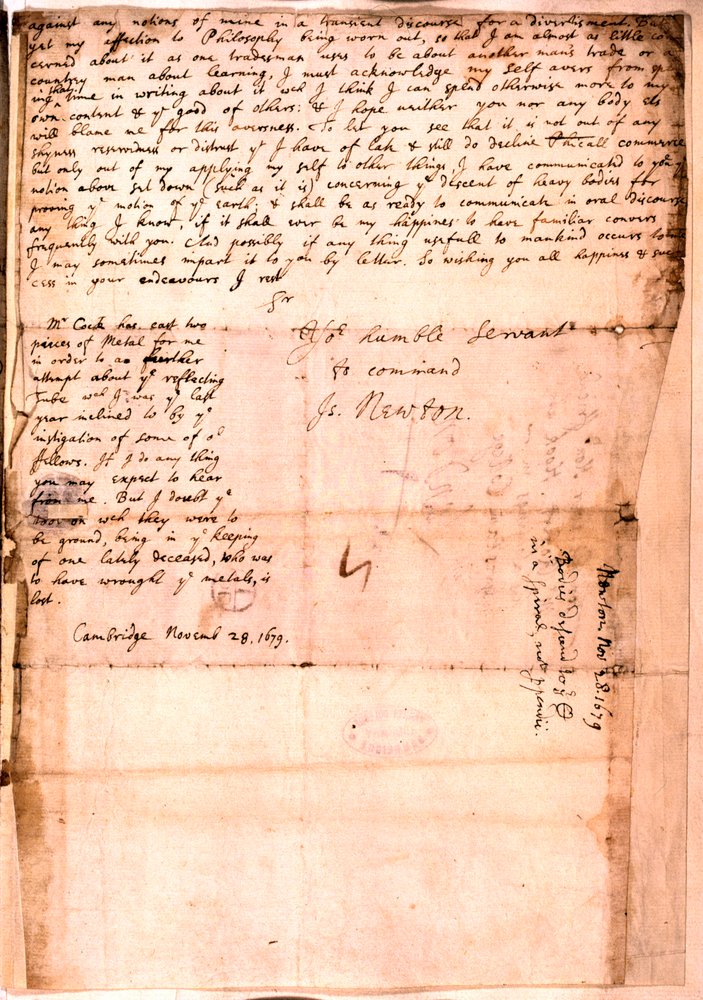 against any notions of mine in a transient discourse for a divertisment. But
yet my affection to Philosophy being worn out, so that I am almost as little con
cerned about it as one tradesman uses to be about another man's trade or a
country man about learning, I must acknowledge my self avers from spe
ing that time in writing about it wch I think I can spend otherwise more to my
own content & ye good of others: & I hope neither you nor any body els
will blame me for this aversness. To let you see that it is not out of any
shyness reservedness or distrust yt I have of late & still do decline Phicall commerce
but only out of my applying my self to other things, I have communicated to you ye
notion above set down (such as it is) concerning ye descent of heavy bodies for
proving ye motion of ye earth; & shall be as ready to communicate in oral discourse
any thing I know, if it shall ever be my happiness to have familiar convers
frequently with you. And possibly if any thing usefull to mankind occurs to me
I may sometimes impart it to you by letter. So wishing you all happiness & suc
cess in your endeavours I rest
Sr
Yor humble Servant
to command
Is. Newton.
Mr Cock has cast two
pieces of Metal for me
in order to a further
attempt about ye reflecting
Tube wch I was ye last
year inclined to by ye
instigation of some of or
fellows. If I do any thing
you may expect to hear
from me. But I doubt ye
tool on wch they were to
be ground, being in ye keeping
of one lately deceased, who was
to have wrought ye metals, is
lost.
Cambridge Novemb 28. 1679.
Newton Nov 28. 1679
Bodies descend to ye
in a spiral, not